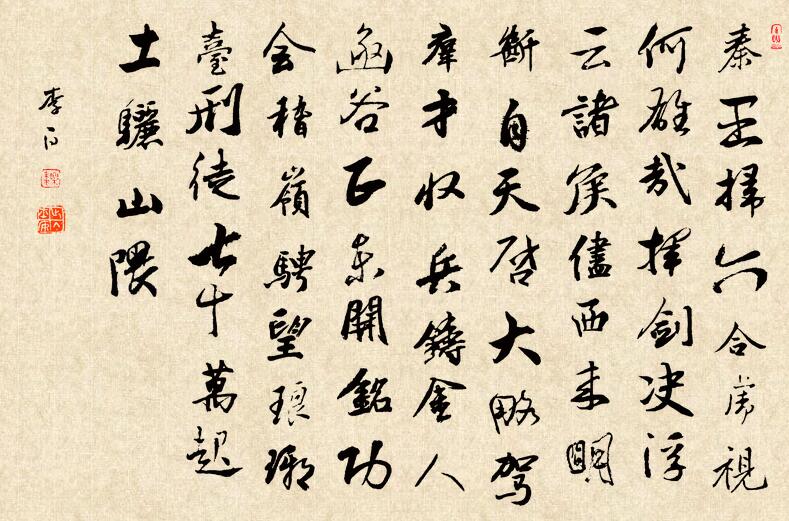 秦王掃六合虎視
何雄哉揮劍决浮
云諸侯儘西来明
断自天啓大略駕
羣才收兵鑄金人
函谷正东開銘功
会稽嶺騁望琅琊
臺刑徒七十萬起
土驪山隈
李白